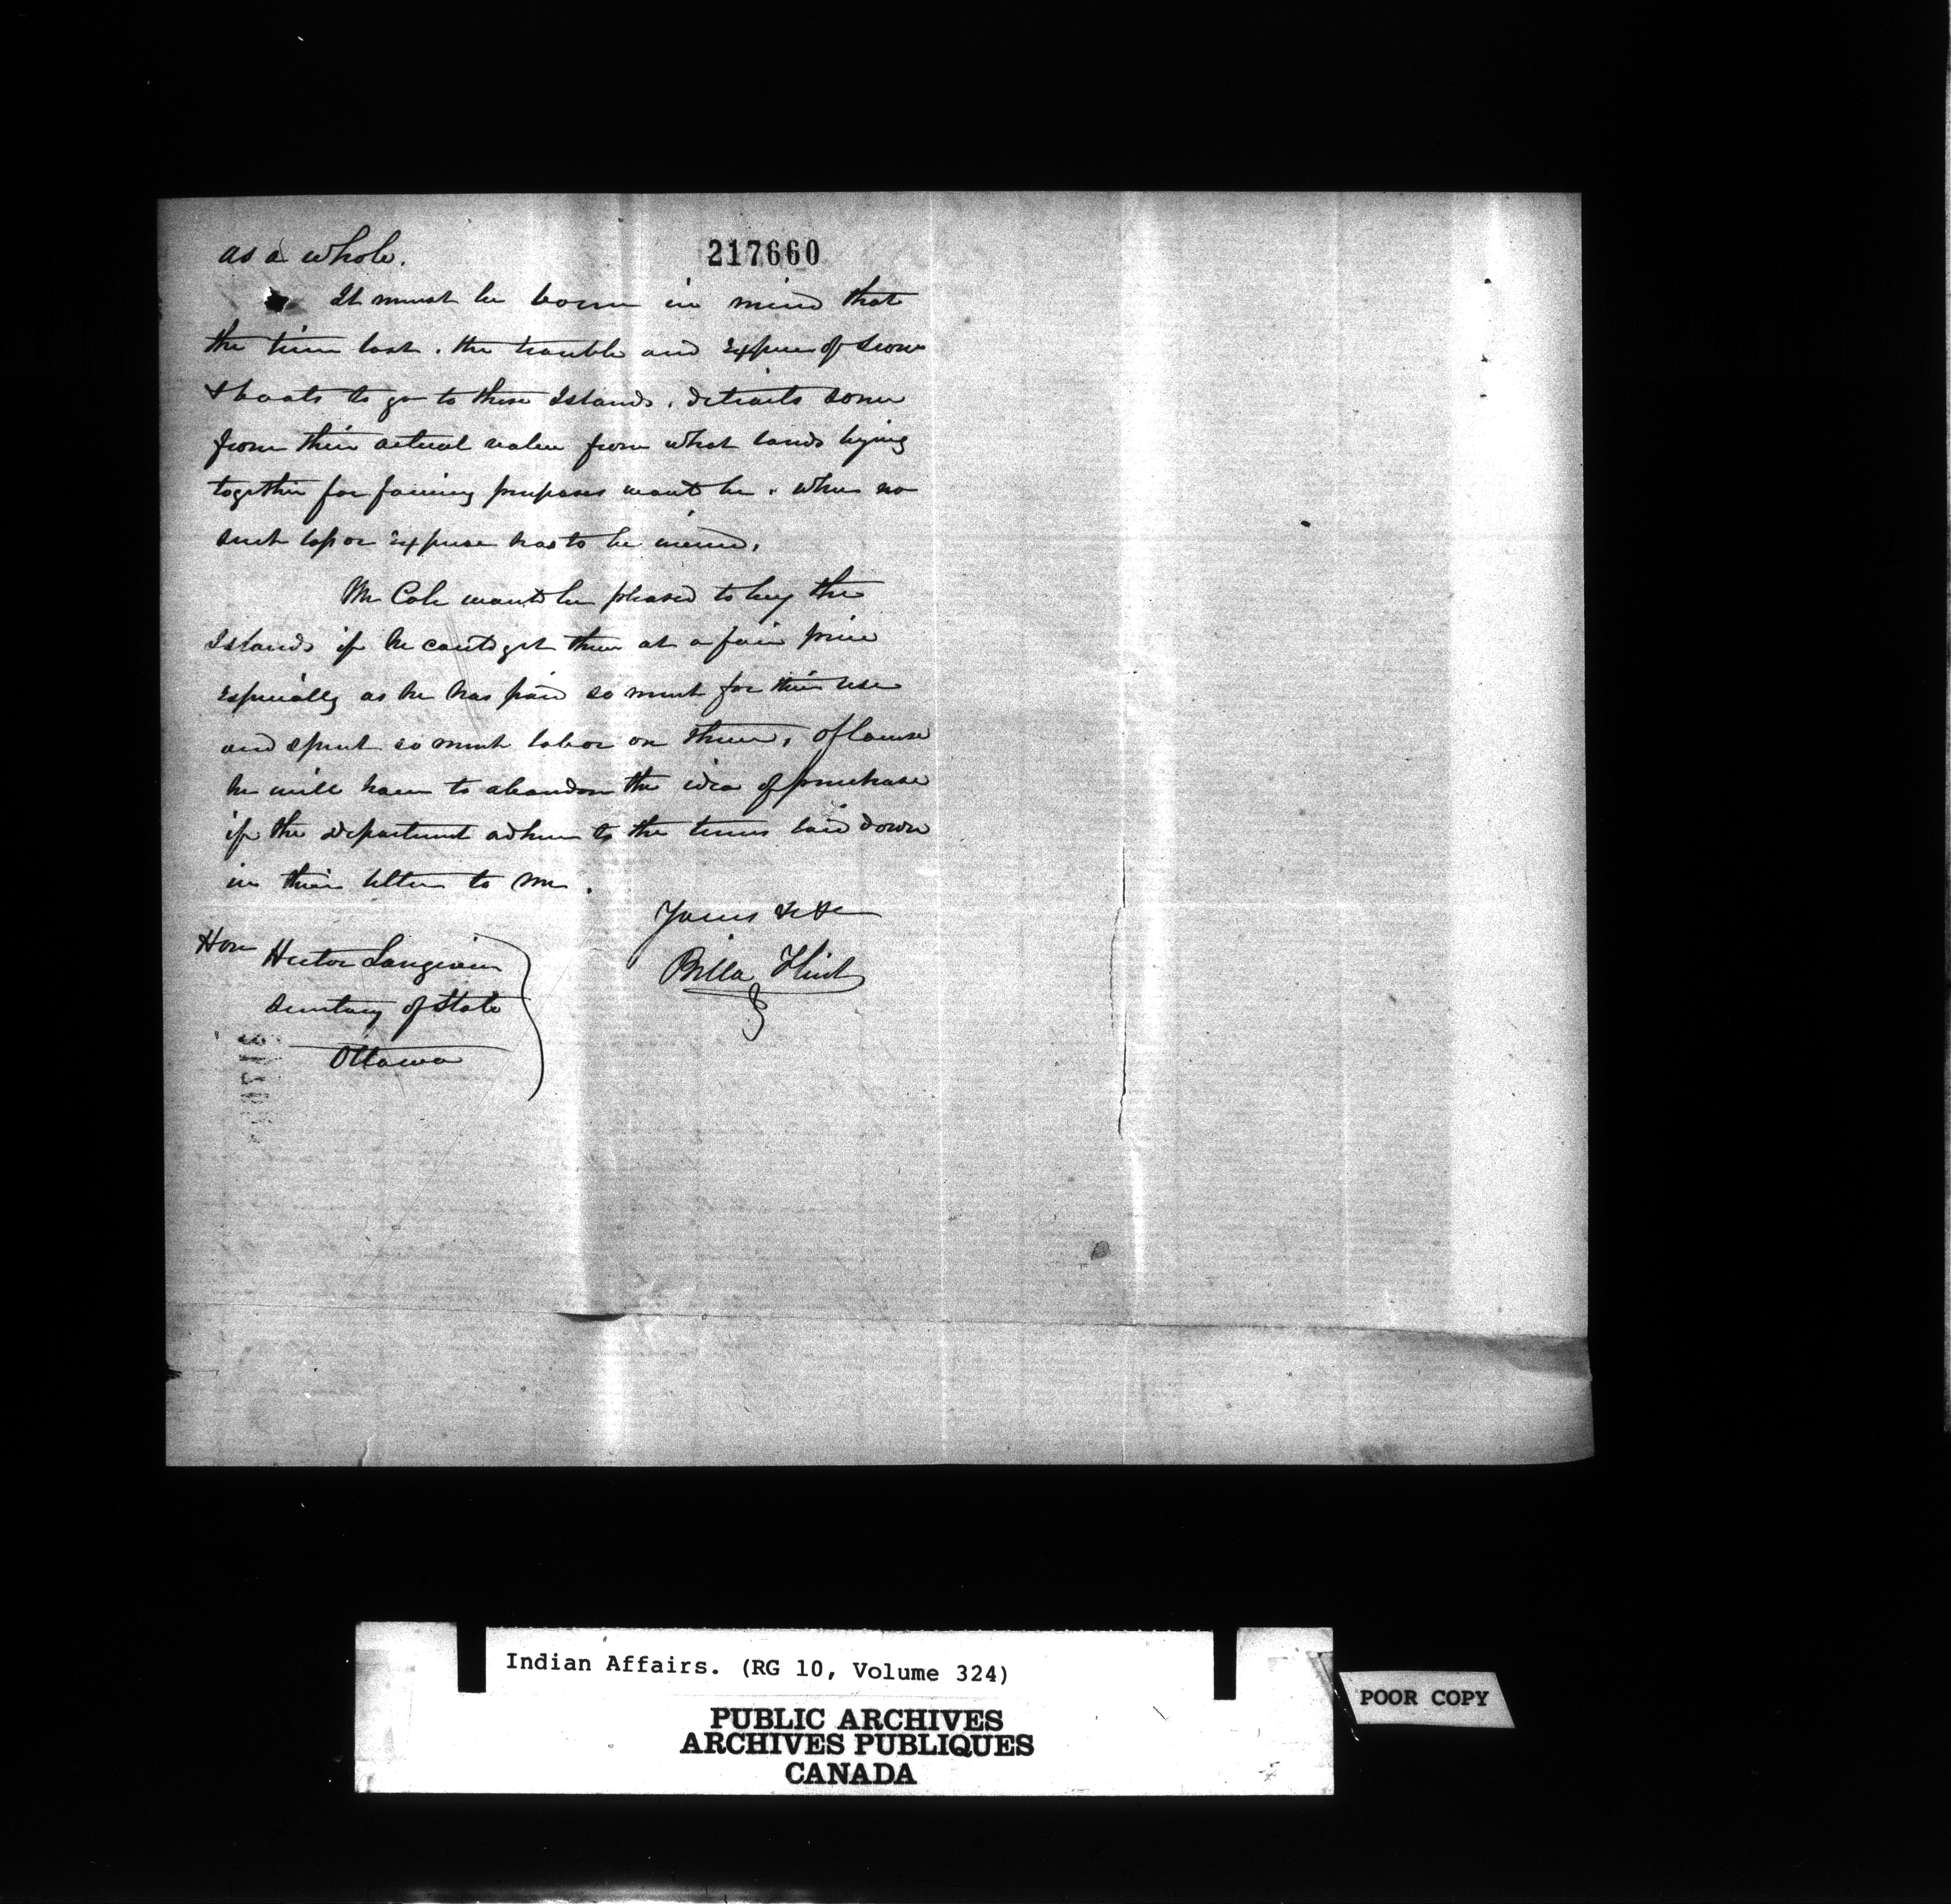 217660
as a whole.
It must be borne in mind that
the time lost, the trouble and Expense of scows
& boats to go to these Islands, detracts some
from their actual value from what lands lying
together for farming purposes would be, when no
such loss or Expense has to be incurred.
Mr Cole would be pleased to buy the
Islands if he could get them at a fair price
Especially as he has paid so much for their use
and spent so much labor on them, of Course
he will have to abandon the idea of purchase
if the Department adhere to the terms laid down
in their letter to me.
Yours &c &c
Billa Flint
Hon Hector Langevin
Secretary of State
Ottawa
Indian Affairs. (RG 10, Volume 324)
PUBLIC ARCHIVES
ARCHIVES PUBLIQUES
CANADA
POOR COPY